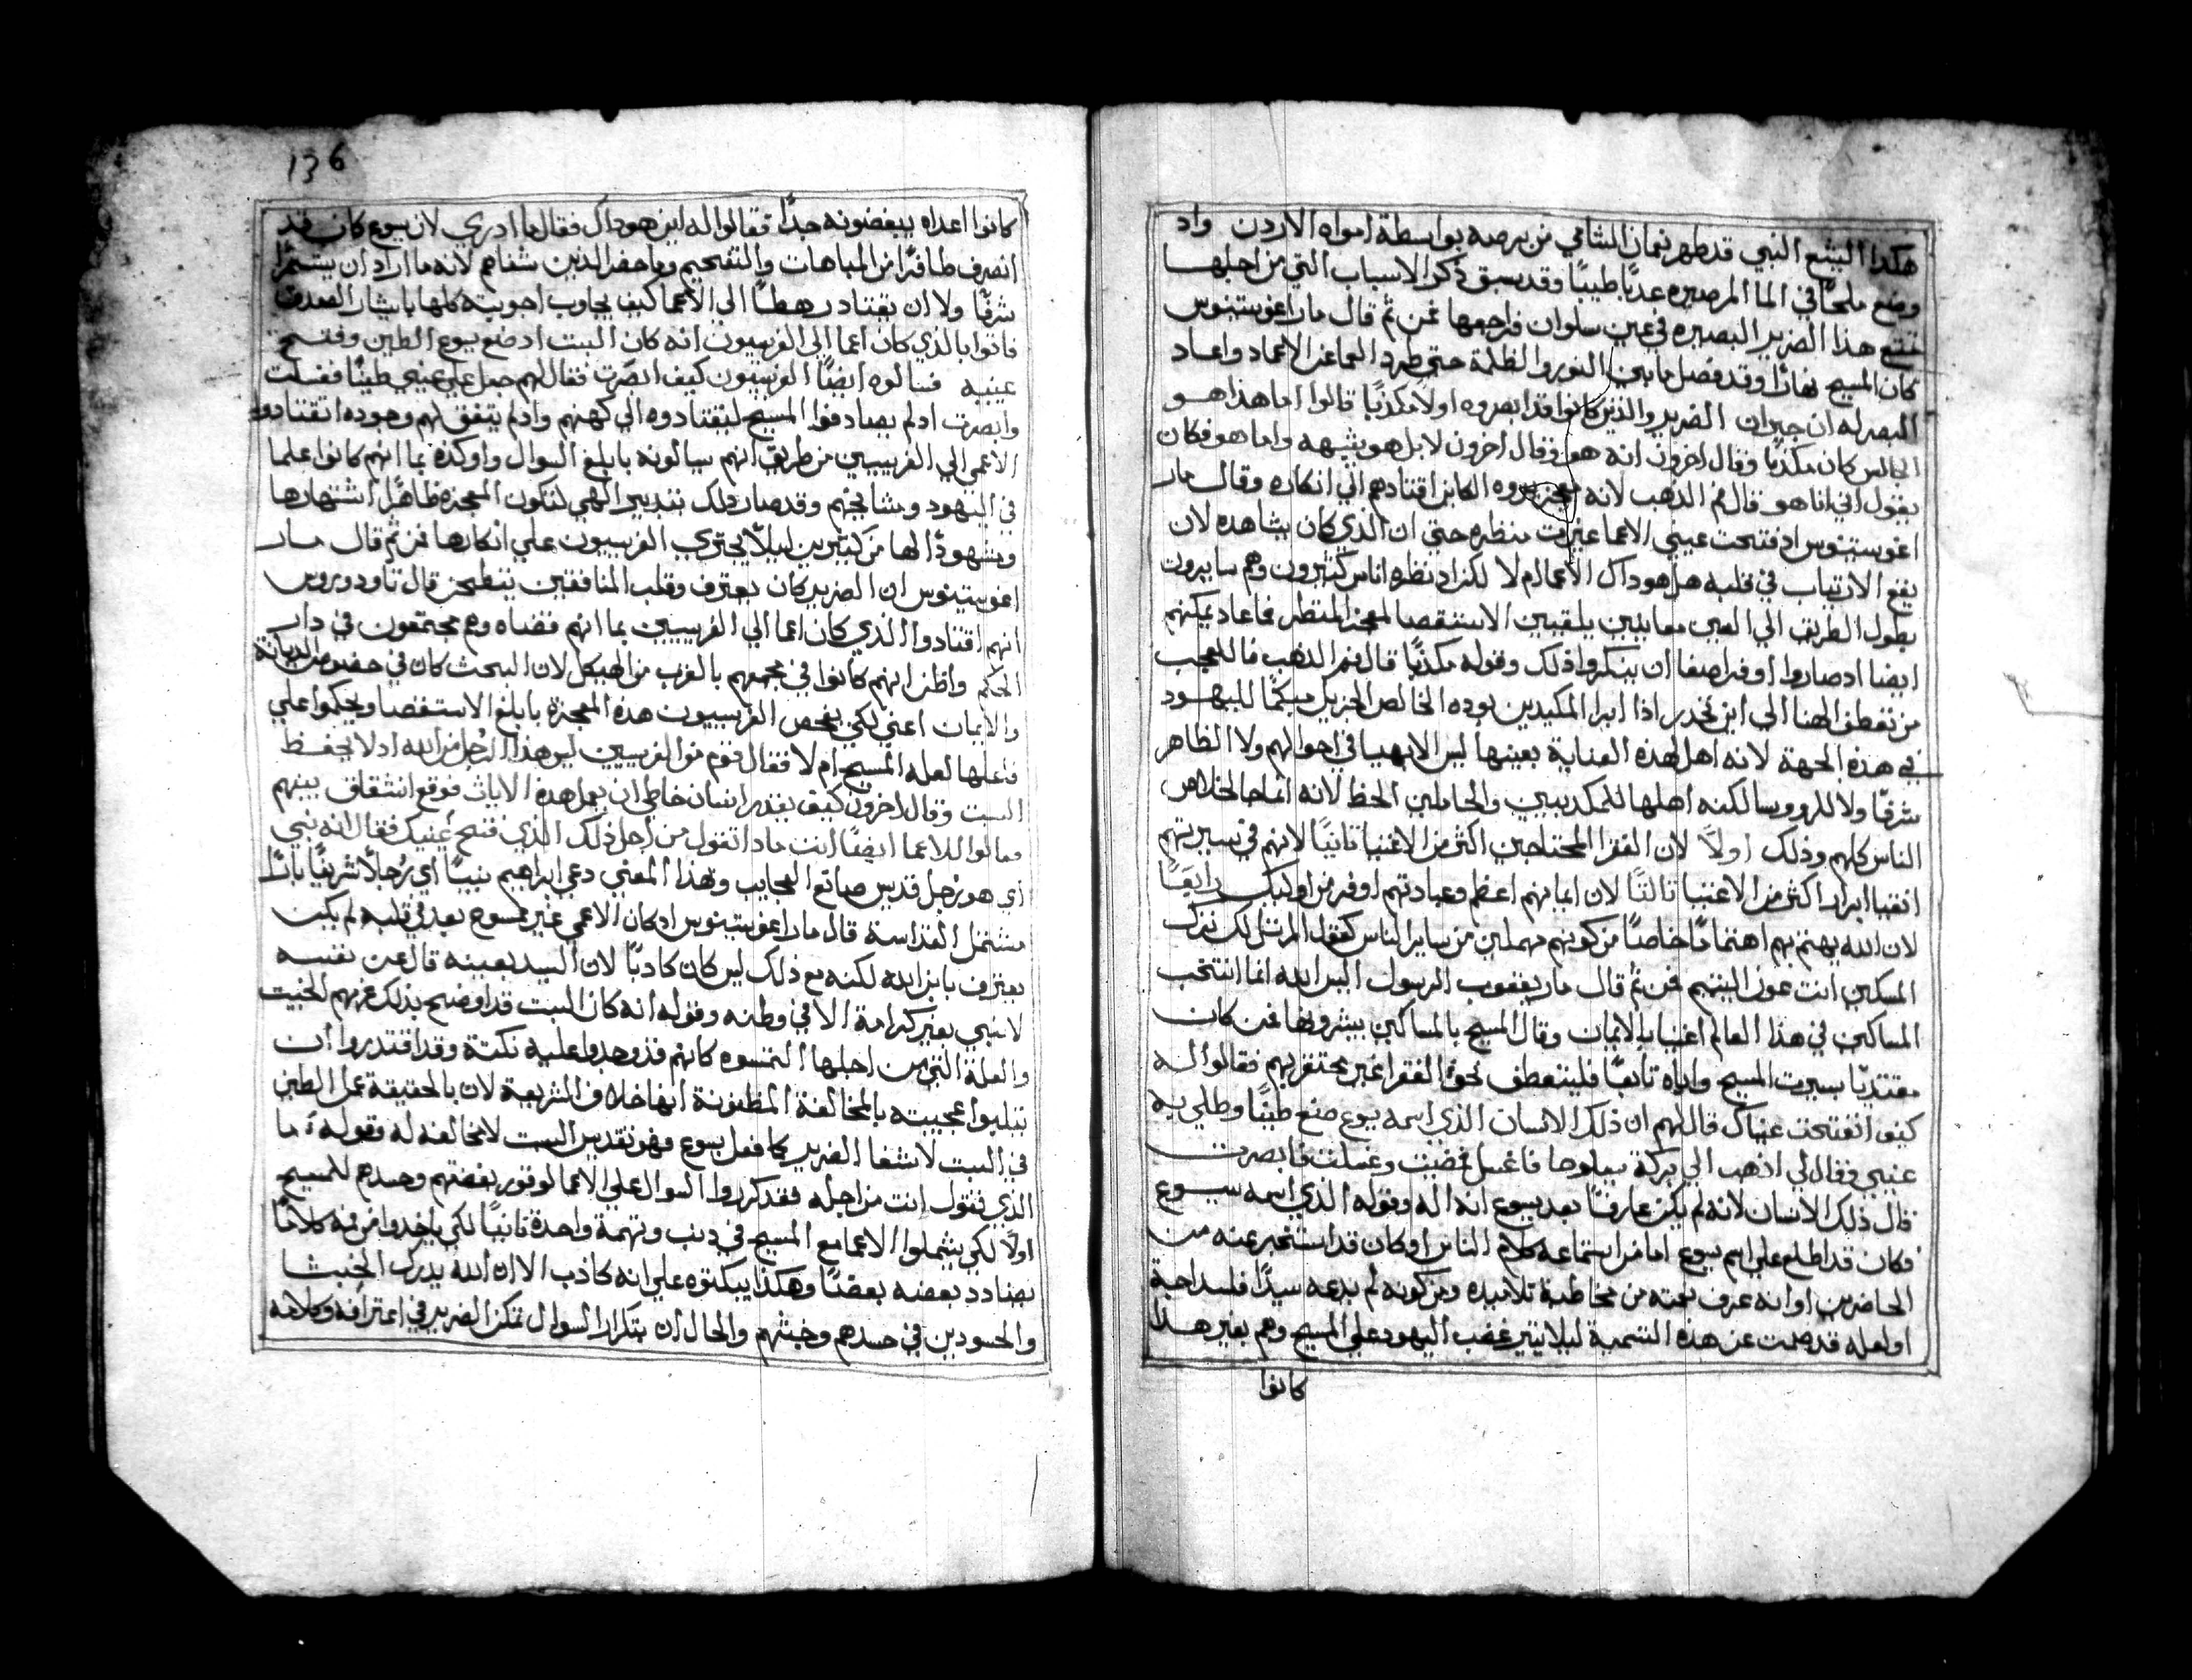 هكدا اليشع النبي قد طهر نعمان الشامي من برصه بواسطة امواه الاردن واد
وضع ملحًا في الما المر صيره عدبًا طيبًا وقد سبق ذكر الاسباب التي من اجلها
فتح هذا الضرير البصيره في عين سلوان فراجعها فمن ثم قال مار اغوستينوس
كان المسيح نهارًا وقد فصل ما بين النور والظلمة حتي طرد العما عن الاعما واعاد
البصر له ان جيران الضرير والذين كانوا قد ابصروه اولاً مكديًا قالوا اما هذا هو
الجالس كان مكديًا وقال اخرون انه هو وقال اخرون لا بل هو يشبهه واما هو فكان
يقول اني انا هو قال فم الذهب لانه الكاين اقتادهم الي انكاره وقال مار
اغوستينوس اد فتحت عيني الاعما غيرت منظره حتي ان الذي كان يشاهده لان
يقع الارتياب في قلبه هل هو داك الاعما ام لا لكن اد نظره اناس كثيرون وهم سايرون
بطول الطريق الي العين معاينين يلقبين الاستقصا لمعجز المنتظر فما عاد يمكنهم
ايضا اد صاروا اوفر اصغا ان ينكروا ذلك وقوله مكديًا قال فم الدهب فاللعجب
من تعطف الهنا الي اين تحدر اذا ابرا المكديين بوده الخالص الجزيل مبكمًا لليهود
في هذه الجهة لانه اهل لهذه العناية بعينها ليس الابهيا في احوالهم ولا الظاهر
شرفًا ولا للروسا لكنه اهلها للمكديين والخاملين الحظ لانه انما جا لخلاص
الناس كلهم وذلك اولاً لان الفقرا المحتاجين اكثر من الاغنيا تانيًا لانهم في سيرتهم
اتقيا ابرار اكثر من الاغنيا تالتًا لان ايمانهم اعظم وعبادتهم اوفر من اوليك رابعًا
لان الله يهتم بهم اهتمامًا خاصًا من كونهم مهملين من ساير الناس كقول المرتل لك ترك
المسكين انت عون اليتيم فمن ثم قال مار يعقوب الرسول اليس الله انما انتخب
المساكين في هذا العالم اغنيا بالايمان وقال المسيح بالمساكين يبشرون فمن كان
مقتديًا بسيرت المسيح واياه تابعًا فليتعطف نحو الفقرا غير محتقر بهم فقالوا له
كيف انفتحت عيناك قال لهم ان ذلك الانسان الذي اسمه يسوع صنع طينًا وطلي به
عيني وقال لي اذهب الي بركة سيلوحا فاغسل فمضيت وغسلت فابصرت
قال ذلك الانسان لانه لم يكن عارفًا بعد بيسوع انه اله وقوله الذي اسمه يسوع
فكان قد اطلع علي اسم يسوع اما من استماعه كلام الناس او كان قد استخبر عنه من
الحاضرين او انه عرف نعته من مخاطبة تلاميذه ومن كونه لم يدعه سيدًا فلسداجة
او لعله قد صمت عن هذه التسمية ليلا يتير غضب اليهود علي المسيح وهم بغير هذا
كانوا
136
كانوا اعداه يبغضونه جدًا فقالوا له اين هو داك فقال ما ادري لان يسوع كان قد
انصرف طافرًا من المباهات والتفخيم وما حضر الدين شفاهم لانه ما اراد ان يستتمر
شرفًا ولا ان يقتاد رهطًا الى الاعما كيف يجاوب اجوبته كلها بايثار الصدق
فاتوا بالذي كان اعما الي الفريسيون انه كان السبت اد صنع يسوع الطين وفتح
عينيه فسالوه ايضًا الفريسيون كيف ابصرت فقال لهم جعل علي عيني طينًا فغسلت
وابصرت اد لم يصادفوا المسيح ليقتادوه الي كهنهم واد لم يتفق لهم وجوده اقتادوا
الاعمي الي الفريسيين من طريق انهم يسالونه بابلغ السوال واوكده بما انهم كانوا علما
في اليهود ومشايخهم وقد صار دلك بتدبير الهي لتكون المعجزه ظاهرًا اشتهارها
وشهودًا لها من كثيرين ليلا يجتري الفريسيون علي انكارها فمن ثم قال مار
اغوستينوس ان الضرير كان يعترف وقلب المنافقين ينطحن قال تاودوروس
انهم اقتادوا الذي كان اعما الي الفريسيين بما انهم قضاه وهم مجتمعون في دار
الحكم واظن انهم كانوا في مجمعهم بالقرب من الهيكل لان البحث كان في خصوص الديانة
والايمان اعني لكي يفحص الفريسيون هذه المعجزة بابلغ الاستقصا ويحكموا علي
فاعلها لعله المسيح ام لا فقال قوم من الفريسيين ليس هذا الرجل من الله اد لا يحفظ
السبت وقال اخرون كيف يقدر انسان خاطي ان يعمل هذه الايات فوقع انشقاق بينهم
وقالوا للاعما ايضًا انت مادا تقول من اجل ذلك الذي فتح عينيك فقال انه نبي
اي هو رجل قديس صانع العجايب وبهذا المعني دعي ابراهيم نبيًا اي رجلاً شريفًا بارًا
مشتمل القداسة قال مار اغوستينوس اد كان الاعمي غير ممسوح بعد في قلبه لم يكن
يعترف بابن الله لكنه مع ذلك ليس كان كادبًا لان السيد بعينه قال عن نفسه
لا نبي بغير كرامة الا في وطنه وقوله انه كان السبت قد اوضح بذلك عزمهم الخبيت
والعلة التي من اجلها التمسوه كانهم قد وجدوا عليه نكتة وقد اقتدروا ان
يتلبوا عجيبته بالمخالفة المظنونة انها خلاف الشريعة لان بالحقيقة عمل الطين
في السبت لاشفا الضرير كما فعل يسوع فهو تقديس السبت لا مخالفه له وقوله ما
الذي تقول انت من اجله فقد كرروا السوال علي الاعما لوفور بغضتهم وحسدهم للمسيح
اولاً لكي يشملوا الاعما مع المسيح في دنب وتهمة واحدة تانيًا لكي ياخدوا من فمه كلامًا
يضادد بعضه بعضًا وهكذا يبكتوه علي انه كاذب الا ان الله يدرك الخبثا
والحسودين في حسدهم وخبثهم والحال ان بتكرار السوال تمكن الضرير في اعترافه وكلامه